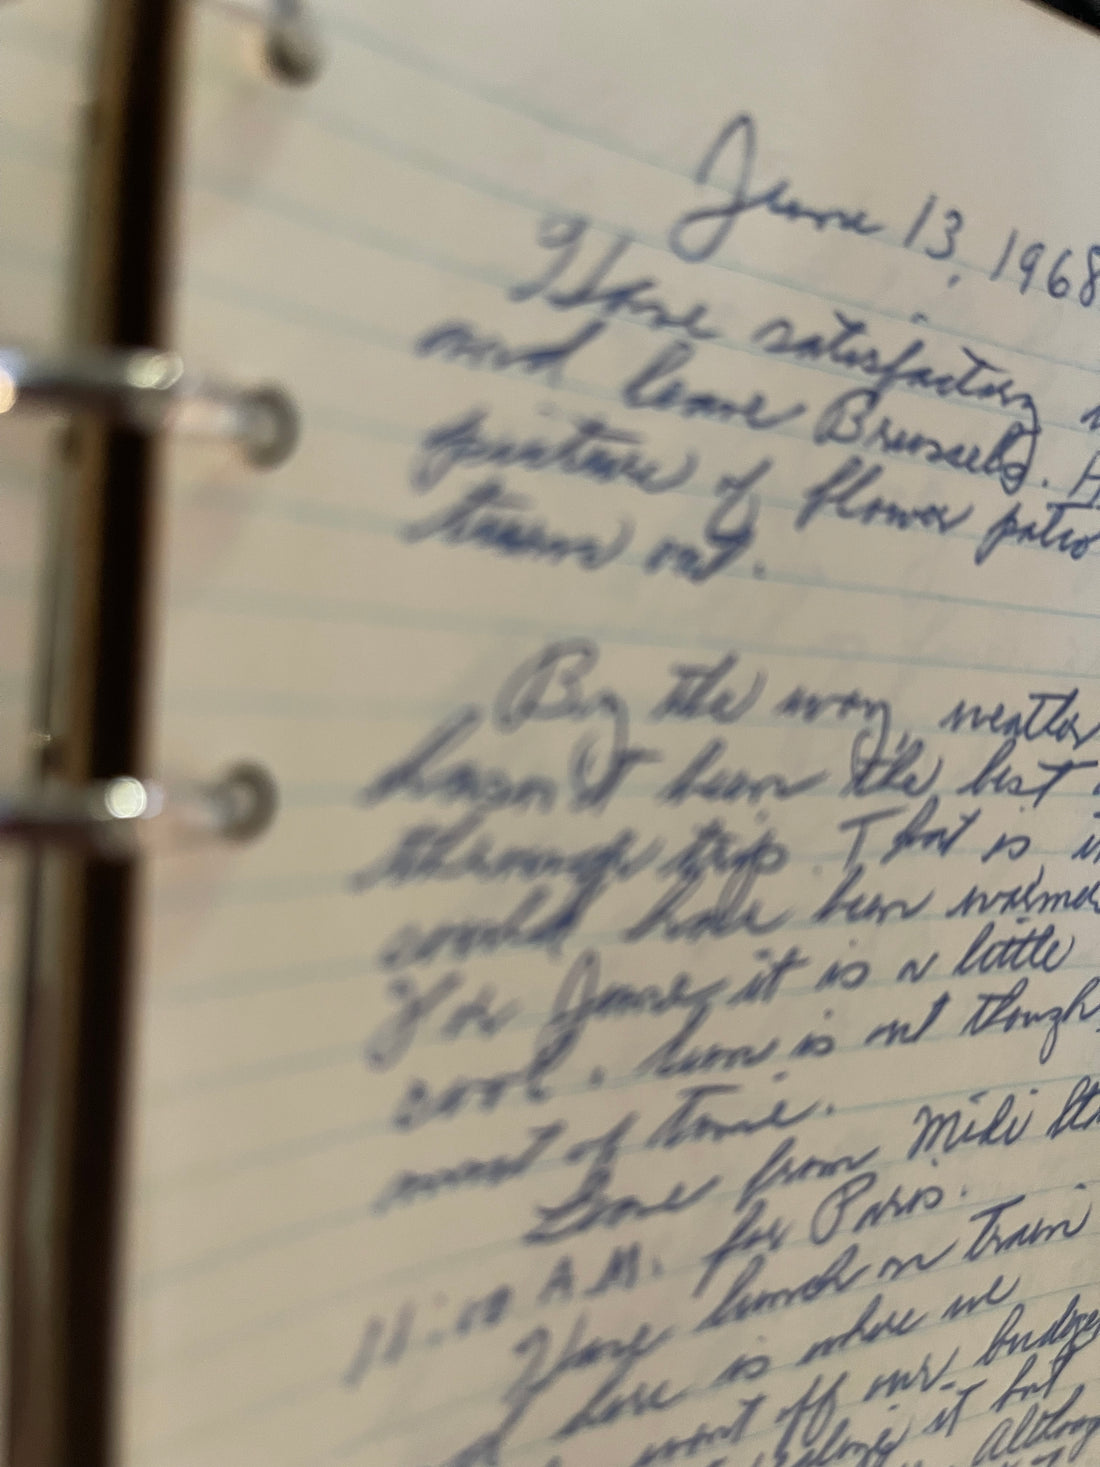 June 13, 1968
Have satisfactory
and leave Brussels. H
picture of flower patio
turns out.
By the way, weather
hasn't been the best
through trip. That is, it
could have been warmer
for June, it is a little
cool. Sun is out though,
most of time.
Leave from Midi
11:00 A.M. for Paris.
Have lunch on train
here is where we
went off our budget
it but
Although